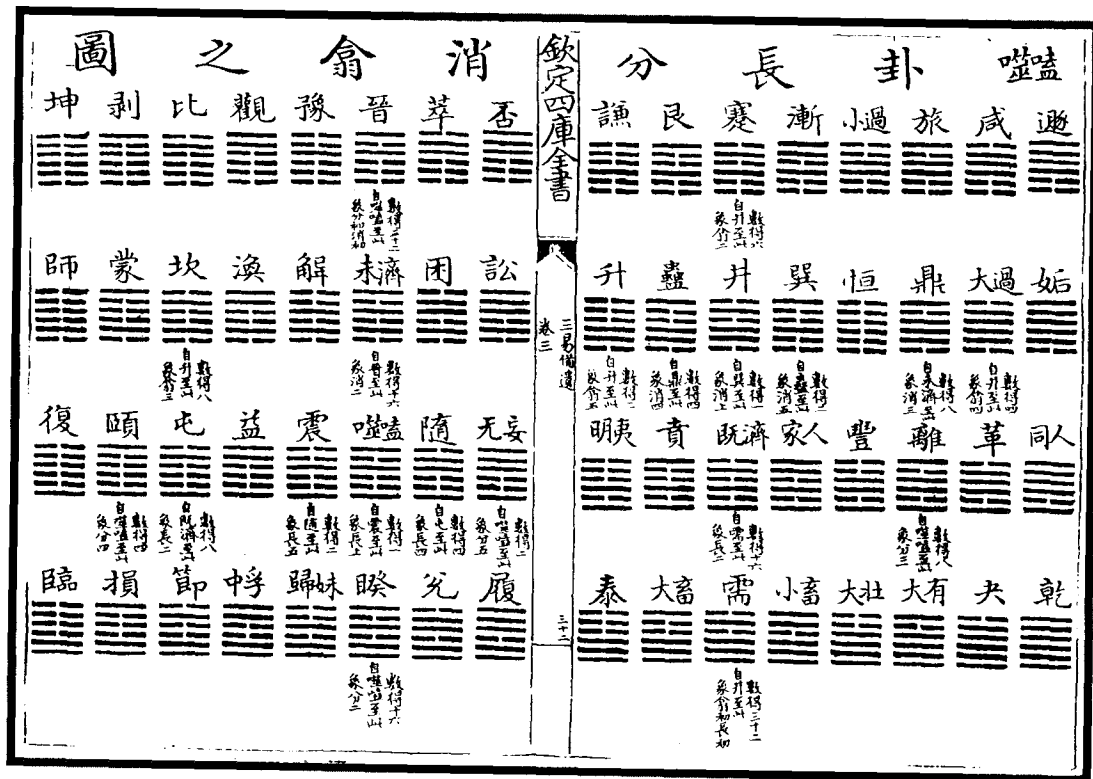 噬嗑卦長分
遯 咸 旅 小過 漸 蹇 艮 謙
數得六
自井至此
象翕二
姤 大過 鼎 恒 巽 井 蠱 升
數得四
自井至此
象翕四
數得八
自未濟至此
象消三
數得二
自蠱至此
象消五
數得一
自巽至此
象消上
數得四
自鼎至此
象消四
數得二
自井至此
象翕五
同人 革 離 豐 家人 既濟 賁 明夷
數得八
自噬嗑至此
象分三
數得十六
自需至此
象長二
乾 夬 大有 大壯 小畜 需 大畜 泰
數得三十二
自井至此
象翕初長初
欽定四庫全書
三易備遺
卷三
三十二
消翕之圖
否 萃 晉 豫 觀 比 剥 坤
數得三十二
自噬嗑至此
象分初消初
訟 困 未濟 解 渙 坎 蒙 師
數得十六
自晉至此
象消二
數得八
自井至此
象翕三
无妄 隨 噬嗑 震 益 屯 頤 復
數得二
自噬嗑至此
象分五
數得四
自屯至此
象長四
數得一
自震至此
象長上
數得二
自隨至此
象長五
數得八
自既濟至此
象長二
數得四
自噬嗑至此
象分四
履 兌 睽 歸妹 中孚 節 損 臨
數得十六
自噬嗑至此
象分二